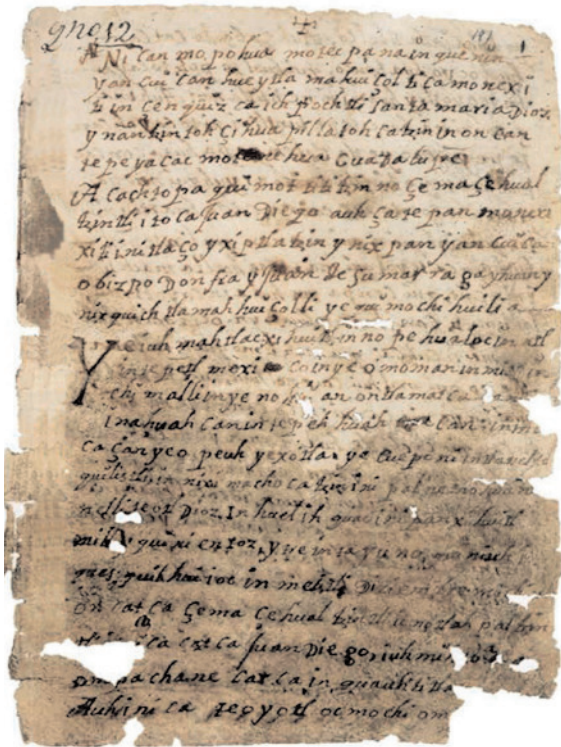 1
Ni can mo pohua motec pa na in que nin
yan cui can huey tla ma hui çol ti ca mo nex i
ti in cen quiz ca ich poch tli santa maria Dios
y nan tzin toh çi hua pilla toh ca tzin in on can
te pe ya cac mo te ne hua Guadalupe
A cach to pa qui mot ti ti tzin no çe ma çe hual
tzin tli i to ca Juan Diego auh ça te pan mo nex i
xi ti in i tla ço y xip tla tzin y nix pan yan cui ca
obizpo Don fray Juan de sumarraga yhuan y
nix quich tla mah hui çolli ye qui mo chi hui li a
ye iuh mah tlac xi huitl in no pe hua loc in atl
in te petl mexi co in ye o mo man in mitl in
chi malli in ye no hui an on tla mat ca
in a huah can in te pe huah can in ma
ca çan ye o peuh ye xo tla, ye cue po ni in tla nel to
qui liz tli in nix i ma cho ca tzin in i pal ne mo hua ni
nelli teotl Dios. In huel ih qua c in i pan xi huitl
mill y qui ni en tos, y tre in ta y u no, qui niuh
ques quilh hui ioc in metztli Diziembre
on cat ca çe ma ce hual tzin tli ic no tla pal tzin
i to ca cat ca Juan Diego, iuh mi
om pa cha ne cat ca in quauh ti tla
Auh in i ca teo yotl oc mo chi om